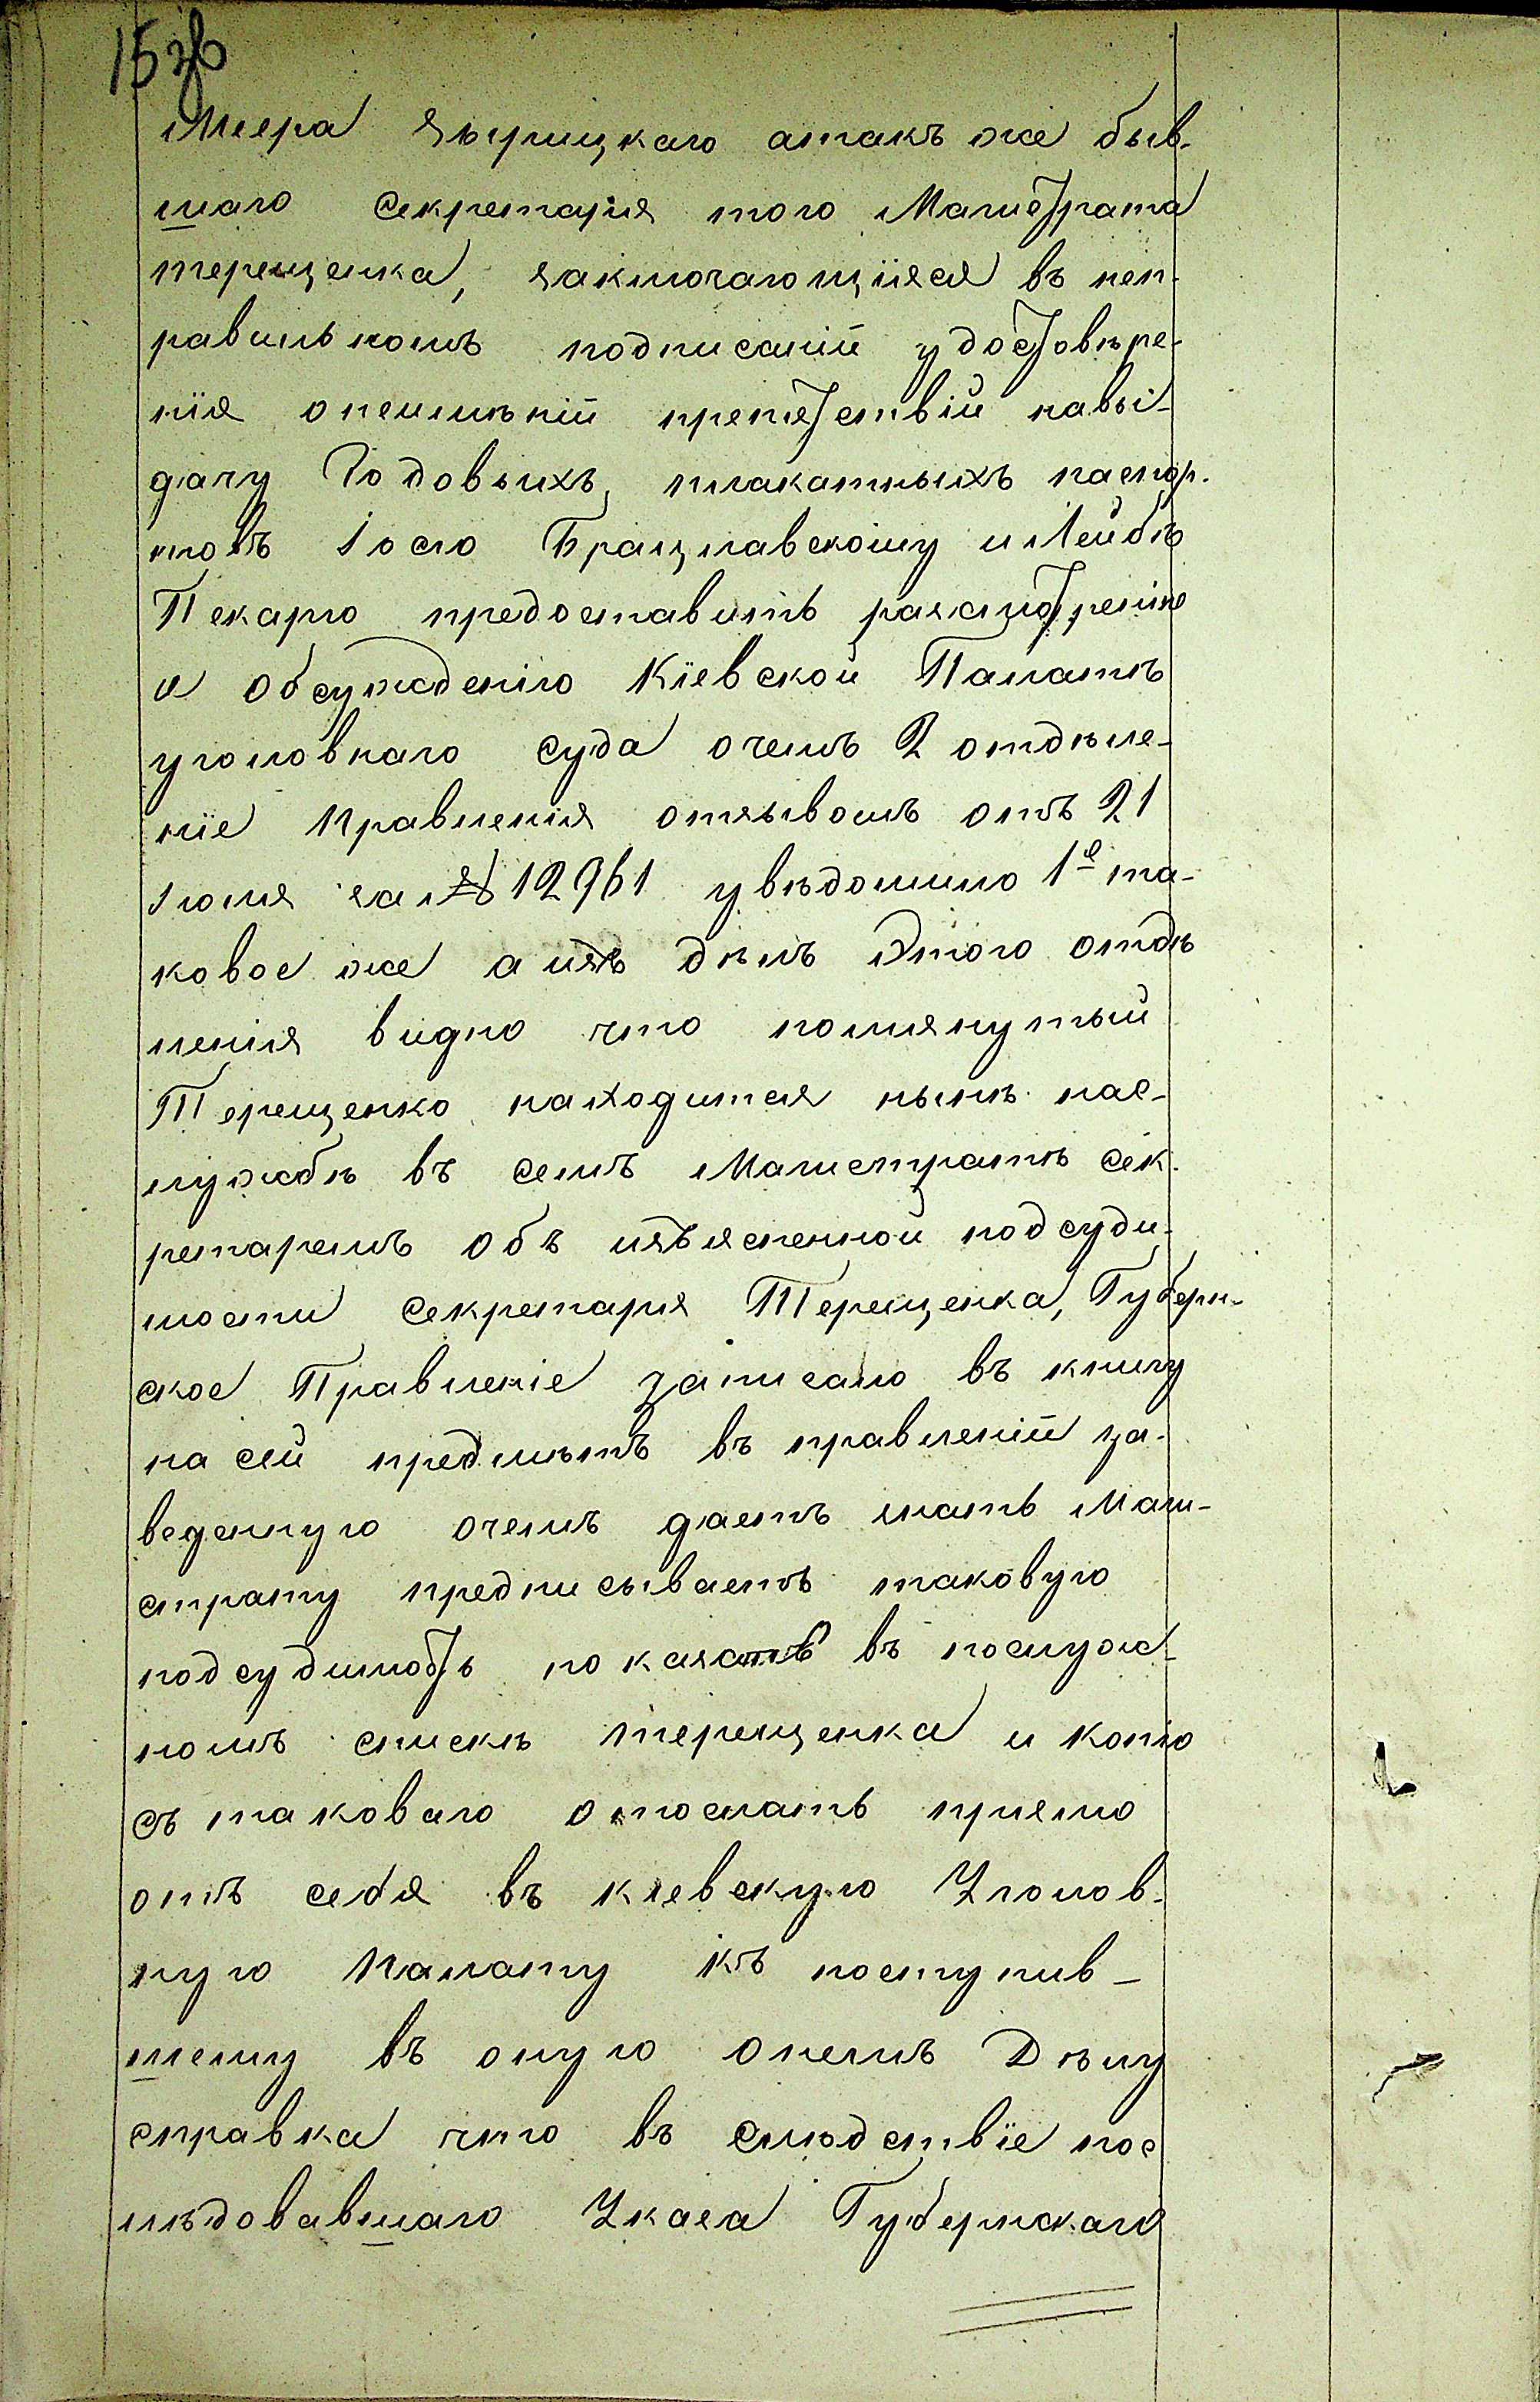 15 зв
Меера Зырицкаго атакъ же быв-
шаго секретаря того Магистрата
терещенка, заключающіяся въ неп-
равильномъ подписаніи удостовѣре-
нія онеимѣніи препятствій навы-
дачу Годовыхъ, плакатныхъ паспор-
товъ Іосю Брацлавскому и Лейбѣ
Пекарю предоставить разсмотреніе
и обсужденію Кіевской Палатѣ
уголовнаго суда очемъ 2 отдѣле-
ніе Правленія отзывомъ отъ 21
Іюля за № 12961 увѣдомило 1е та-
ковое же а изъ дѣлъ Этого отдѣ
ленія видно что помянутый
Терещенко находится нынѣ нас-
лужбѣ въ семъ Магистратѣ сек-
ретаремъ объ изъясненной подсуди-
мости секретаря Терещенка, Губерн-
ское Правленіе записало въ книгу
на сей предмѣтъ въ правленіи за-
веденную очемъ даетъ знать Маги-
страту предписываетъ таковую
подсудимость показать въ послуж-
номъ спискѣ терещенка и копію
съ таковаго отослать прямо
отъ себя въ кіевскую Уголов-
ную Палату къ поступив-
шему въ оную онемъ Дѣлу
справка что въ слѣдствіе пос
лѣдовавшаго Указа Губернскаго